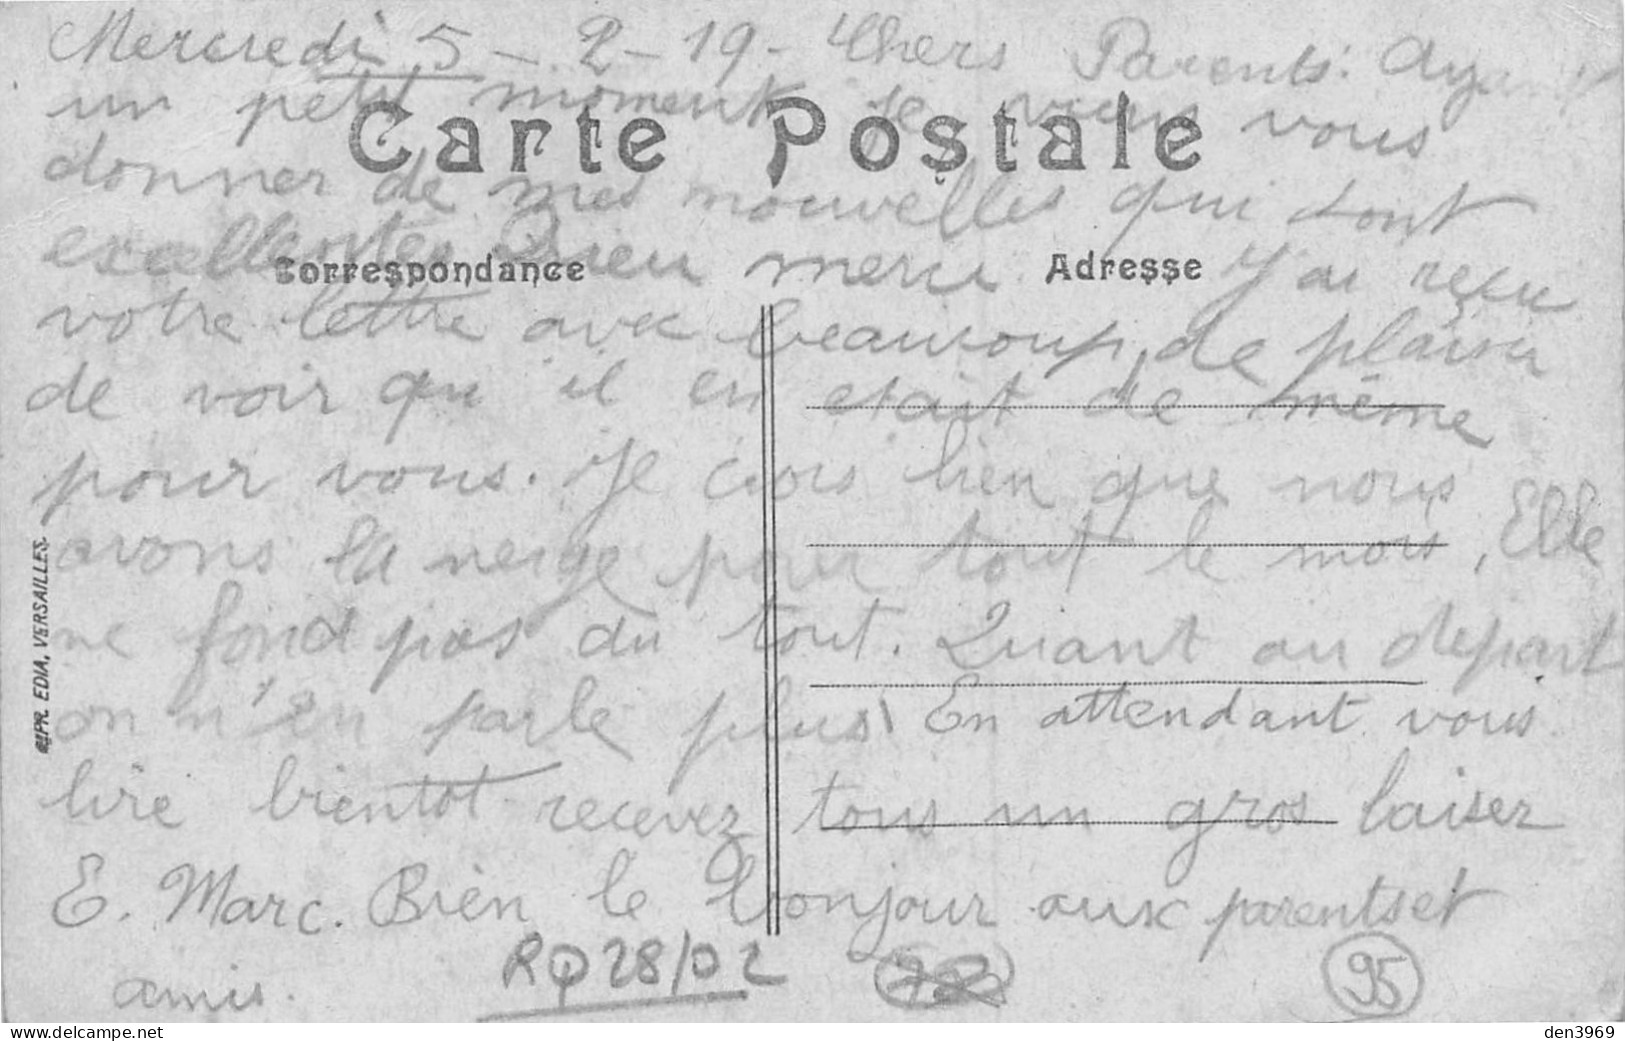 Mercredi 5 - 2 - 19 - Chers Parents. Ayant
un petit moment je viens vous
Carte Postale
donner de mes nouvelles qui sont
excellentes Dieu merci J'ai reçu
Correspondance Adresse
votre lettre avec beaucoup de plaisir
de voir qu il en etait de même
pour vous. Je crois bien que nous
avons la neige pour tout le mois, Elle
ne fond pas du tout. Quant au depart
on n'en parle plus En attendant vous
lire bientot recevez tous un gros baiser
E. Marc. Bien le bonjour aux parents et
amis.
RP 28/02 95
IMPR. EDIA, VERSAILLES.
www.delcampe.net den3969